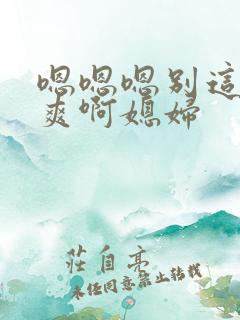 嗯嗯嗯别這
爽啊媳婦
莊自亮
未经同意禁止转载